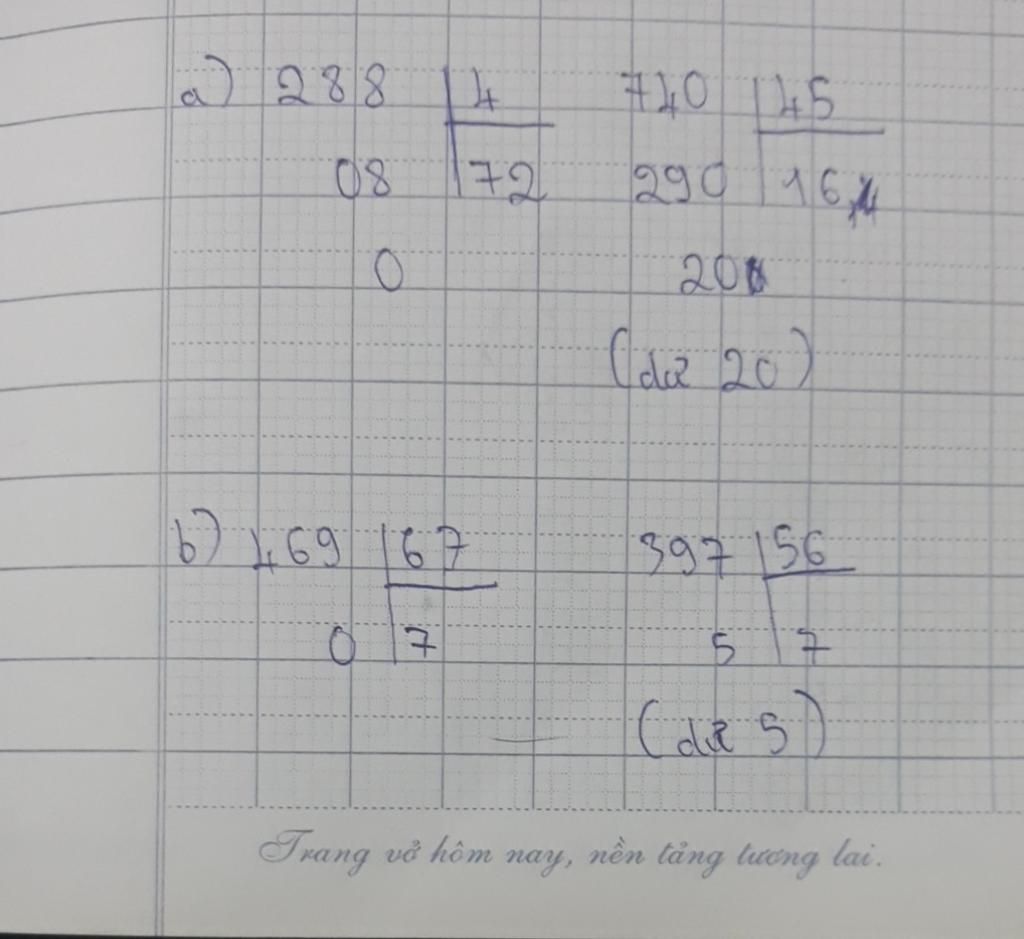 a) 288 4 740 45
08 72 290 16
0 20
(dư 20)
b) 469 67 397 56
0 7 5 7
(dư 5)
Trang vở hôm nay, nền tảng tương lai.